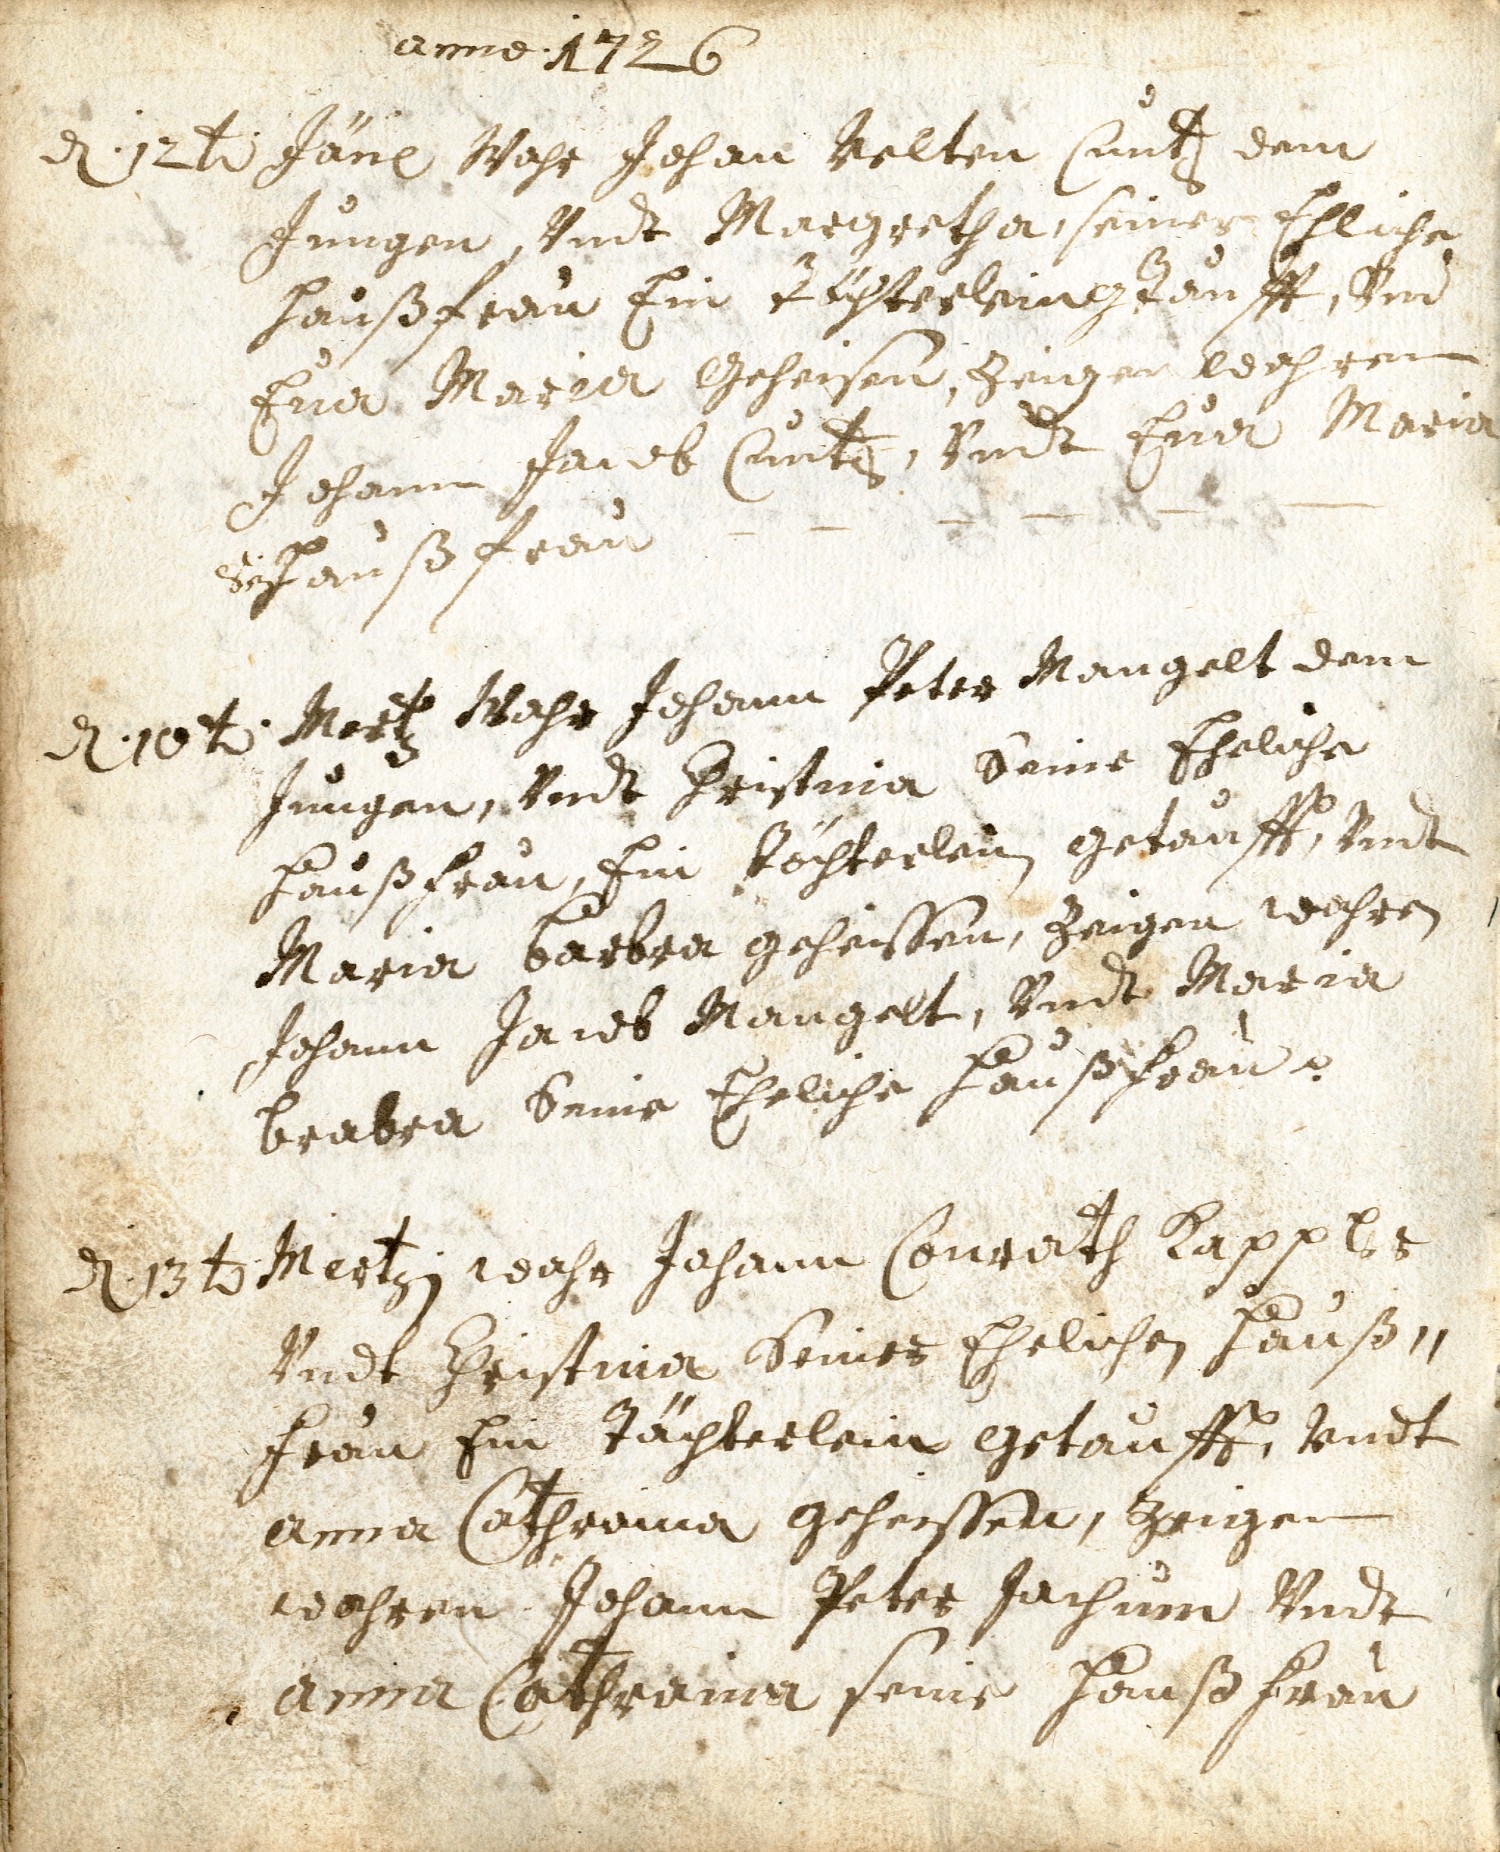 anno · 1726
d. 12t Jäne Wahr Johan Velten Cuntz dem
Jungen, Vndt Margretha, seiner Ehliche
haußfrau Ein töchterlein getaufft, Vnd
Eua Maria Geheisen, Zeugen wahren
Johann Jacob Cuntz, Vndt Eua Maria
haußfrau
d. 10t. Mertz Wahr Johann Peter Mangelt dem
Jungen, Vndt Christina Seine Eheliche
haußfrau, Ein töchterlein getaufft, Vndt
Maria barbra geheissen, Zeigen wahren
Johann Jacob Mangelt, Vndt Maria
brabra Seine Eheliche haußfrau.
d. 13t Mertz wahr Johann Conrath Kappler
Vndt Christina Seiner Ehelichen hauß„
frau Ein Tächterlein getaufft, Vndt
anna Cathraina geheissen, Zeigen
wahren Johann Peter Jachum Vndt
anna Cathraina seine haußfrau